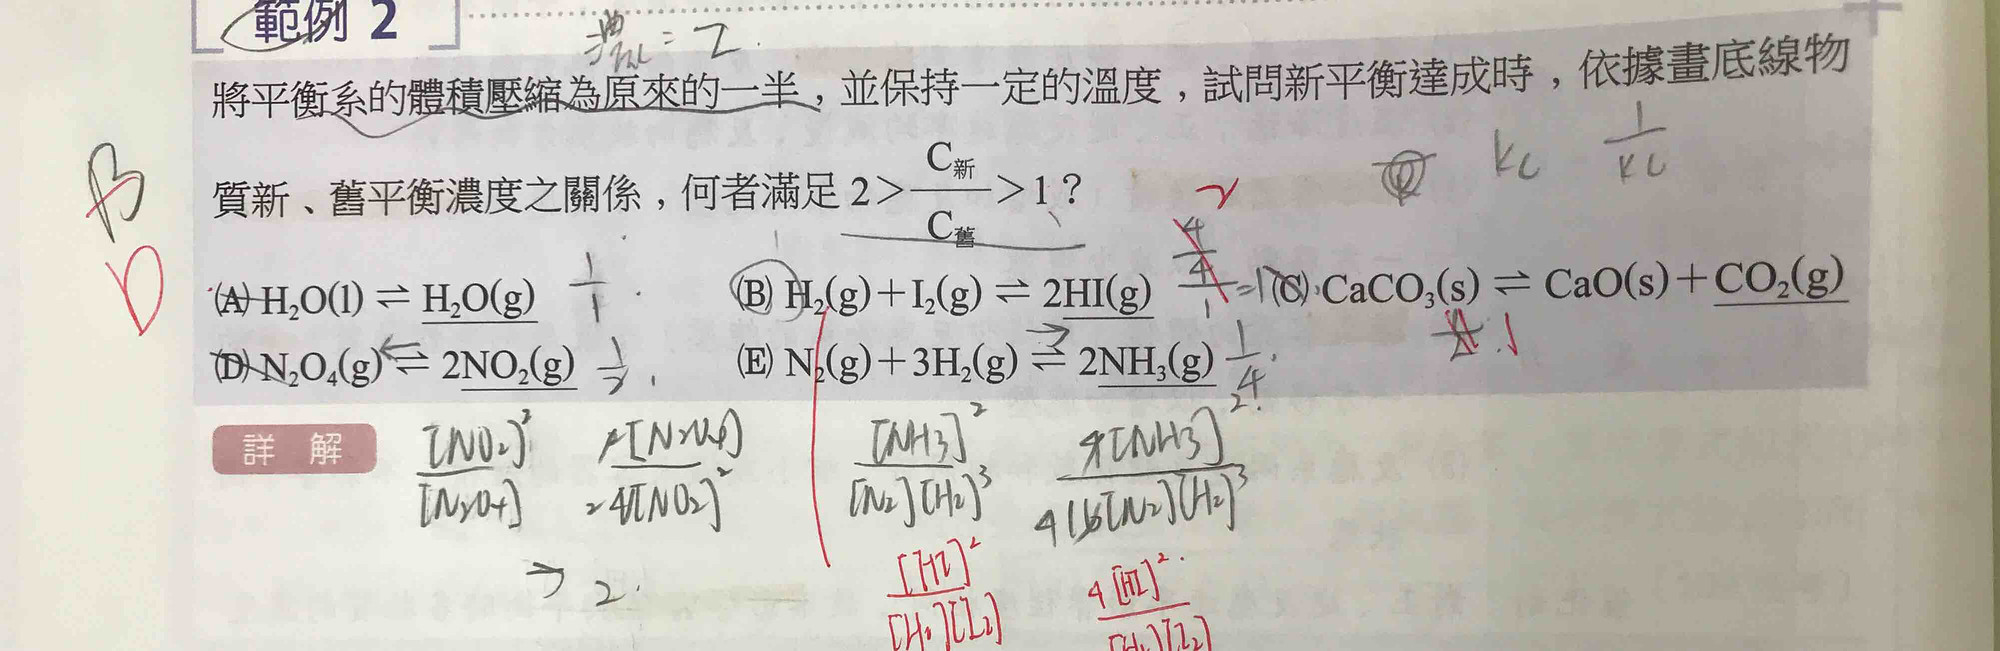 範例 2
濃 = 2
將平衡系的體積壓縮為原來的一半，並保持一定的溫度，試問新平衡達成時，依據畫底線物
質新、舊平衡濃度之關係，何者滿足 2＞C新/C舊＞1？
Kc 1/Kc
B
D
(A) H₂O(l) ⇌ H₂O(g) 1/1 (B) H₂(g)＋I₂(g) ⇌ 2HI(g) 4/4 =1 (C) CaCO₃(s) ⇌ CaO(s)＋CO₂(g)
(D) N₂O₄(g) ⇌ 2NO₂(g) 1/2 (E) N₂(g)＋3H₂(g) ⇌ 2NH₃(g) 1/4
詳解
[NO₂]²/[N₂O₄] [N₂O₄]/4[NO₂]² [NH3]²/[N₂][H₂]³ 4[NH3]²/16[N₂][H₂]³
→ 2
[HI]²/[H₂][I₂] 4[HI]²/[H₂][I₂]